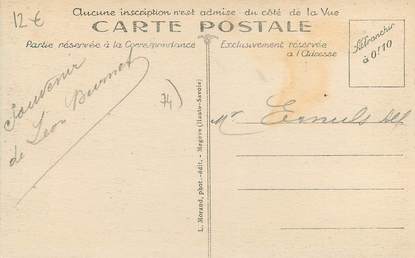 12 €
Aucune inscription n'est admise du côté de la Vue
CARTE POSTALE
Partie réservée à la Correspondance
Exclusivement réservée
à l'Adresse
Affranchir
à 0f10
Souvenir
de Léon
74)
Mr
L. Morand, phot.-édit. - Megève (Haute-Savoie)